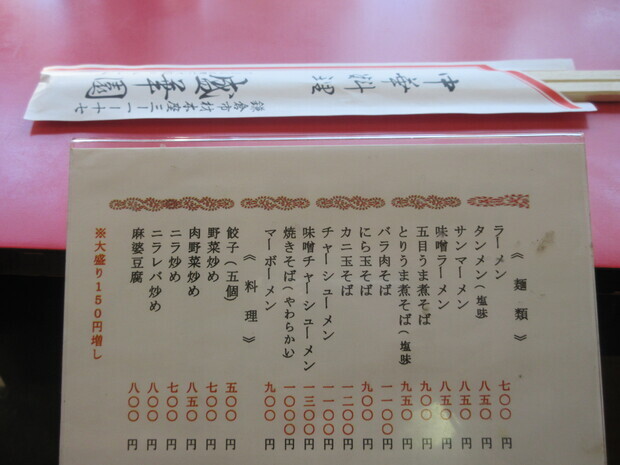 中華料理
盛華園
鎌倉市材木座三-一-十七
《麺類》
ラーメン 七〇〇円
タンメン(塩味) 八五〇円
サンマーメン 八五〇円
味噌ラーメン 八五〇円
五目うま煮そば 九〇〇円
とりうま煮そば(塩味) 九五〇円
バラ肉そば 一一〇〇円
にら玉そば 九〇〇円
カニ玉そば 一二〇〇円
チャーシューメン 一一〇〇円
味噌チャーシューメン 一三〇〇円
焼きそば(やわらかい) 一〇〇〇円
マーボーメン 九〇〇円
《料理》
餃子(五個) 五〇〇円
野菜炒め 七〇〇円
肉野菜炒め 八五〇円
ニラ炒め 七〇〇円
ニラレバ炒め 八〇〇円
麻婆豆腐 八〇〇円
※大盛り150円増し